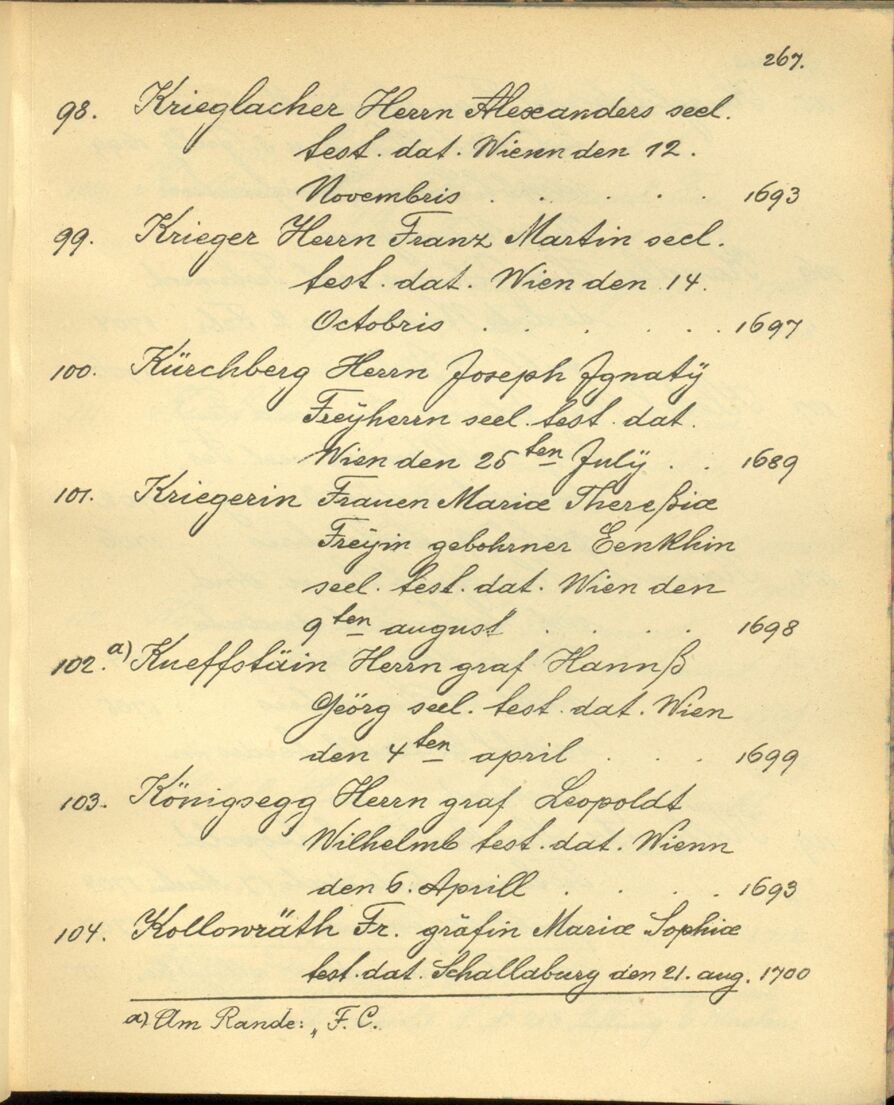 267.
98. Krieglacher Herrn Alexanders seel.
test. dat. Wienn den 12.
Novembris . . . . . 1693
99. Krieger Herrn Franz Martin seel.
test. dat. Wien den 14.
Octobris . . . . . 1697
100. Kürchberg Herrn Joseph Ignatÿ
Freÿherrn seel. test. dat.
Wien den 25ten Julÿ . . 1689
101. Kriegerin Frauen Mariæ Thereßiæ
Freÿin gebohrner Eenkhin
seel. test. dat. Wien den
9ten august . . . . 1698
102. a) Kueffstäin Herrn graf Hannß
Geörg seel. test. dat. Wien
den 4ten april . . . 1699
103. Königsegg Herrn graf Leopoldt
Wilhelmb test. dat. Wienn
den 6. Aprill . . . . 1693
104. Kollowräth Fr. gräfin Mariæ Sophiæ
test. dat. Schallaburg den 21. aug. 1700
a) Am Rande: „F. C.